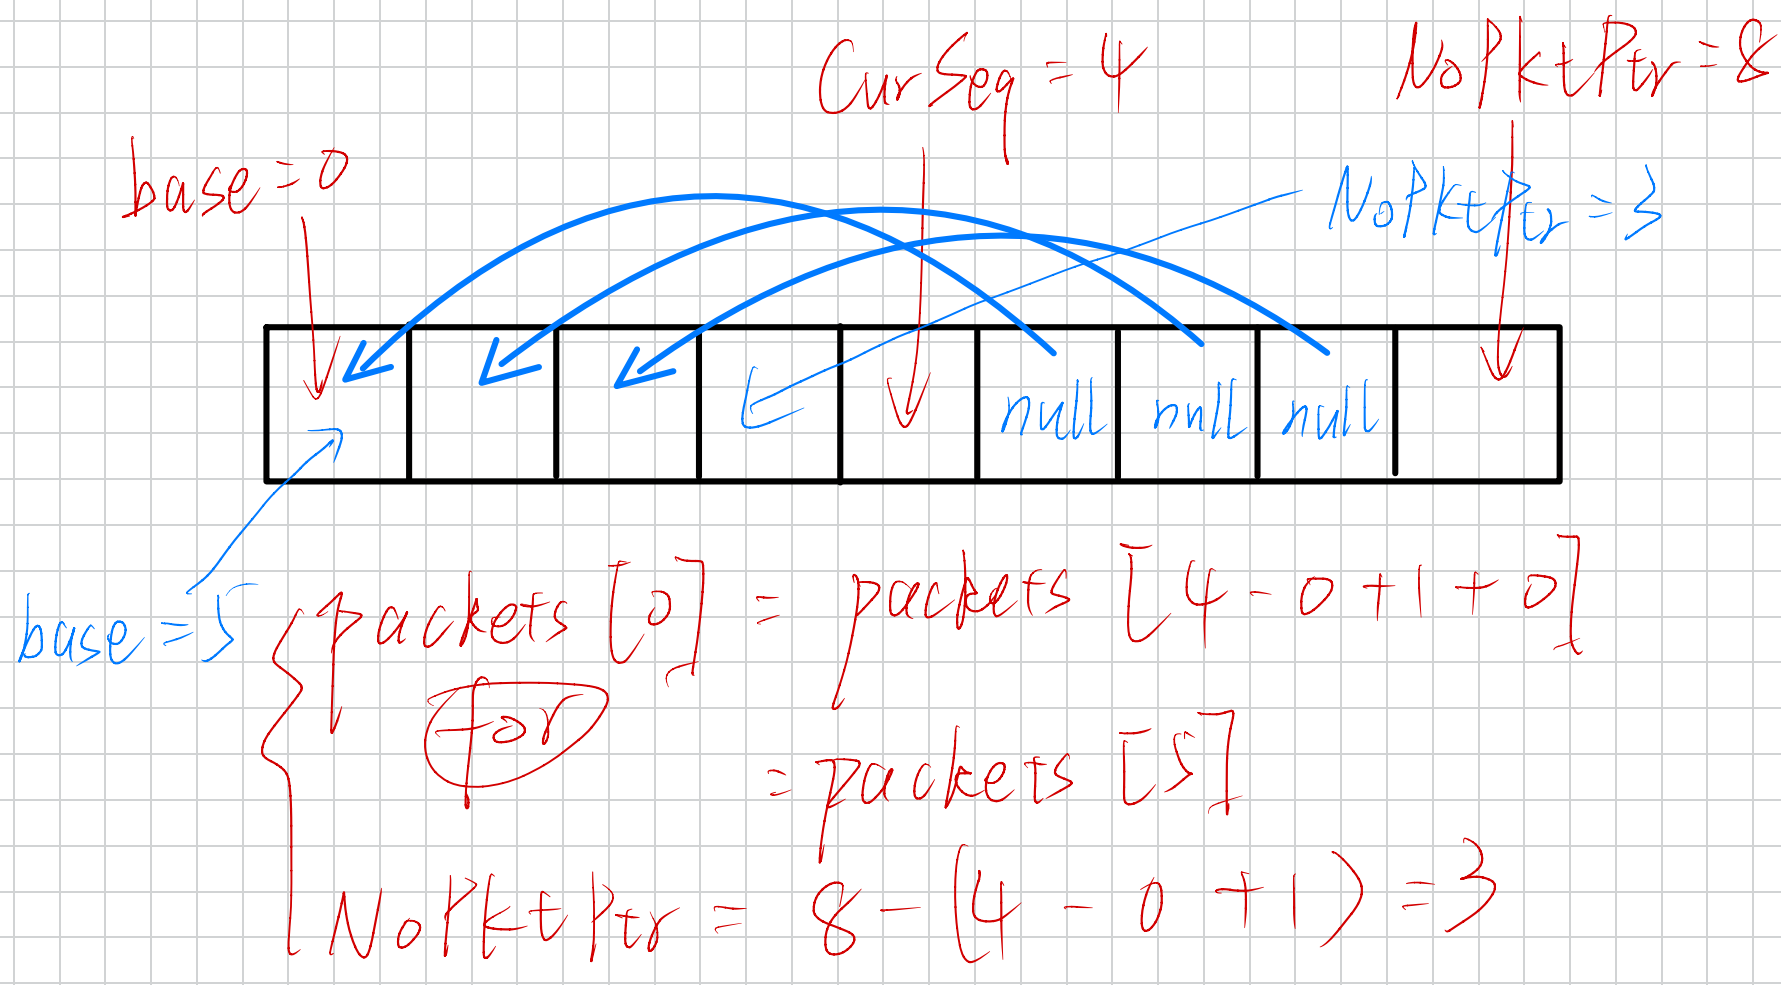 CurSeq = 4
NoPktPtr = 8
base = 0
NoPktPtr = 3
null null null
base = 5
packets [0] = packets [4 - 0 + 1 + 0]
for
= packets [5]
NoPktPtr = 8 - (4 - 0 + 1) = 3